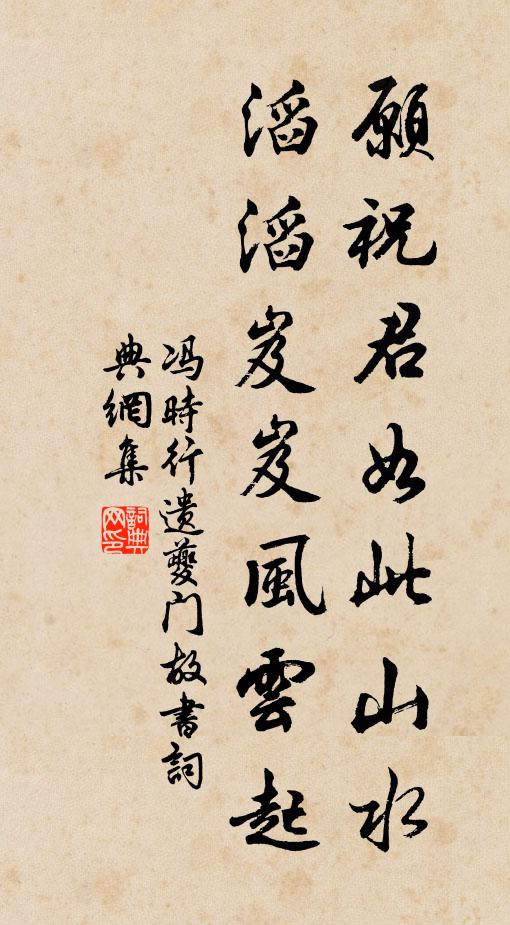 願祝君如此山水
滔滔岌岌風雲起
冯時行遺夔门故書詞
典網集
詞典
网印